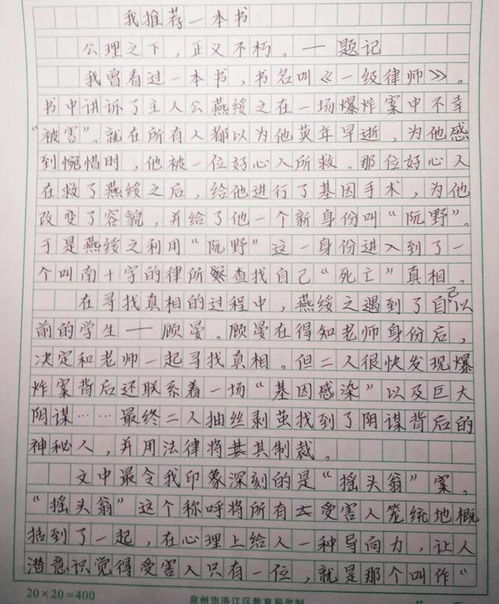 我推荐一本书
公理之下，正义不朽。——题记
我曾看过一本书，书名叫《一级律师》。
书中讲诉了主人公燕绥之在一场爆炸案中不幸
“被害”。就在所有人都以为他英年早逝，为他感
到惋惜时，他被一位好心人所救。那位好心人
在救了燕绥之后，给他进行了基因手术，为他
改变了容貌，并给了他一个新身份叫“阮野”。
于是燕绥之利用“阮野”这一身份进入到了一
个叫南十字的律所查找自己“死亡”真相。
在寻找真相的过程中，燕绥之遇到了自己以
前的学生——顾晏。顾晏在得知老师身份后，
决定和老师一起寻找真相。但二人很快发现爆
炸案背后还联系着一场“基因感染”以及巨大
阴谋……最终二人抽丝剥茧找到了阴谋背后的
神秘人，并用法律将其制裁。
文中最令我印象深刻的是“摇头翁”案。
“摇头翁”这个称呼将所有受害人笼统地概
括到了一起，在心理上给人一种导向力，让人
潜意识觉得受害人只有一位，就是那个叫作“
20×20=400
泉州市洛江区教育局监制